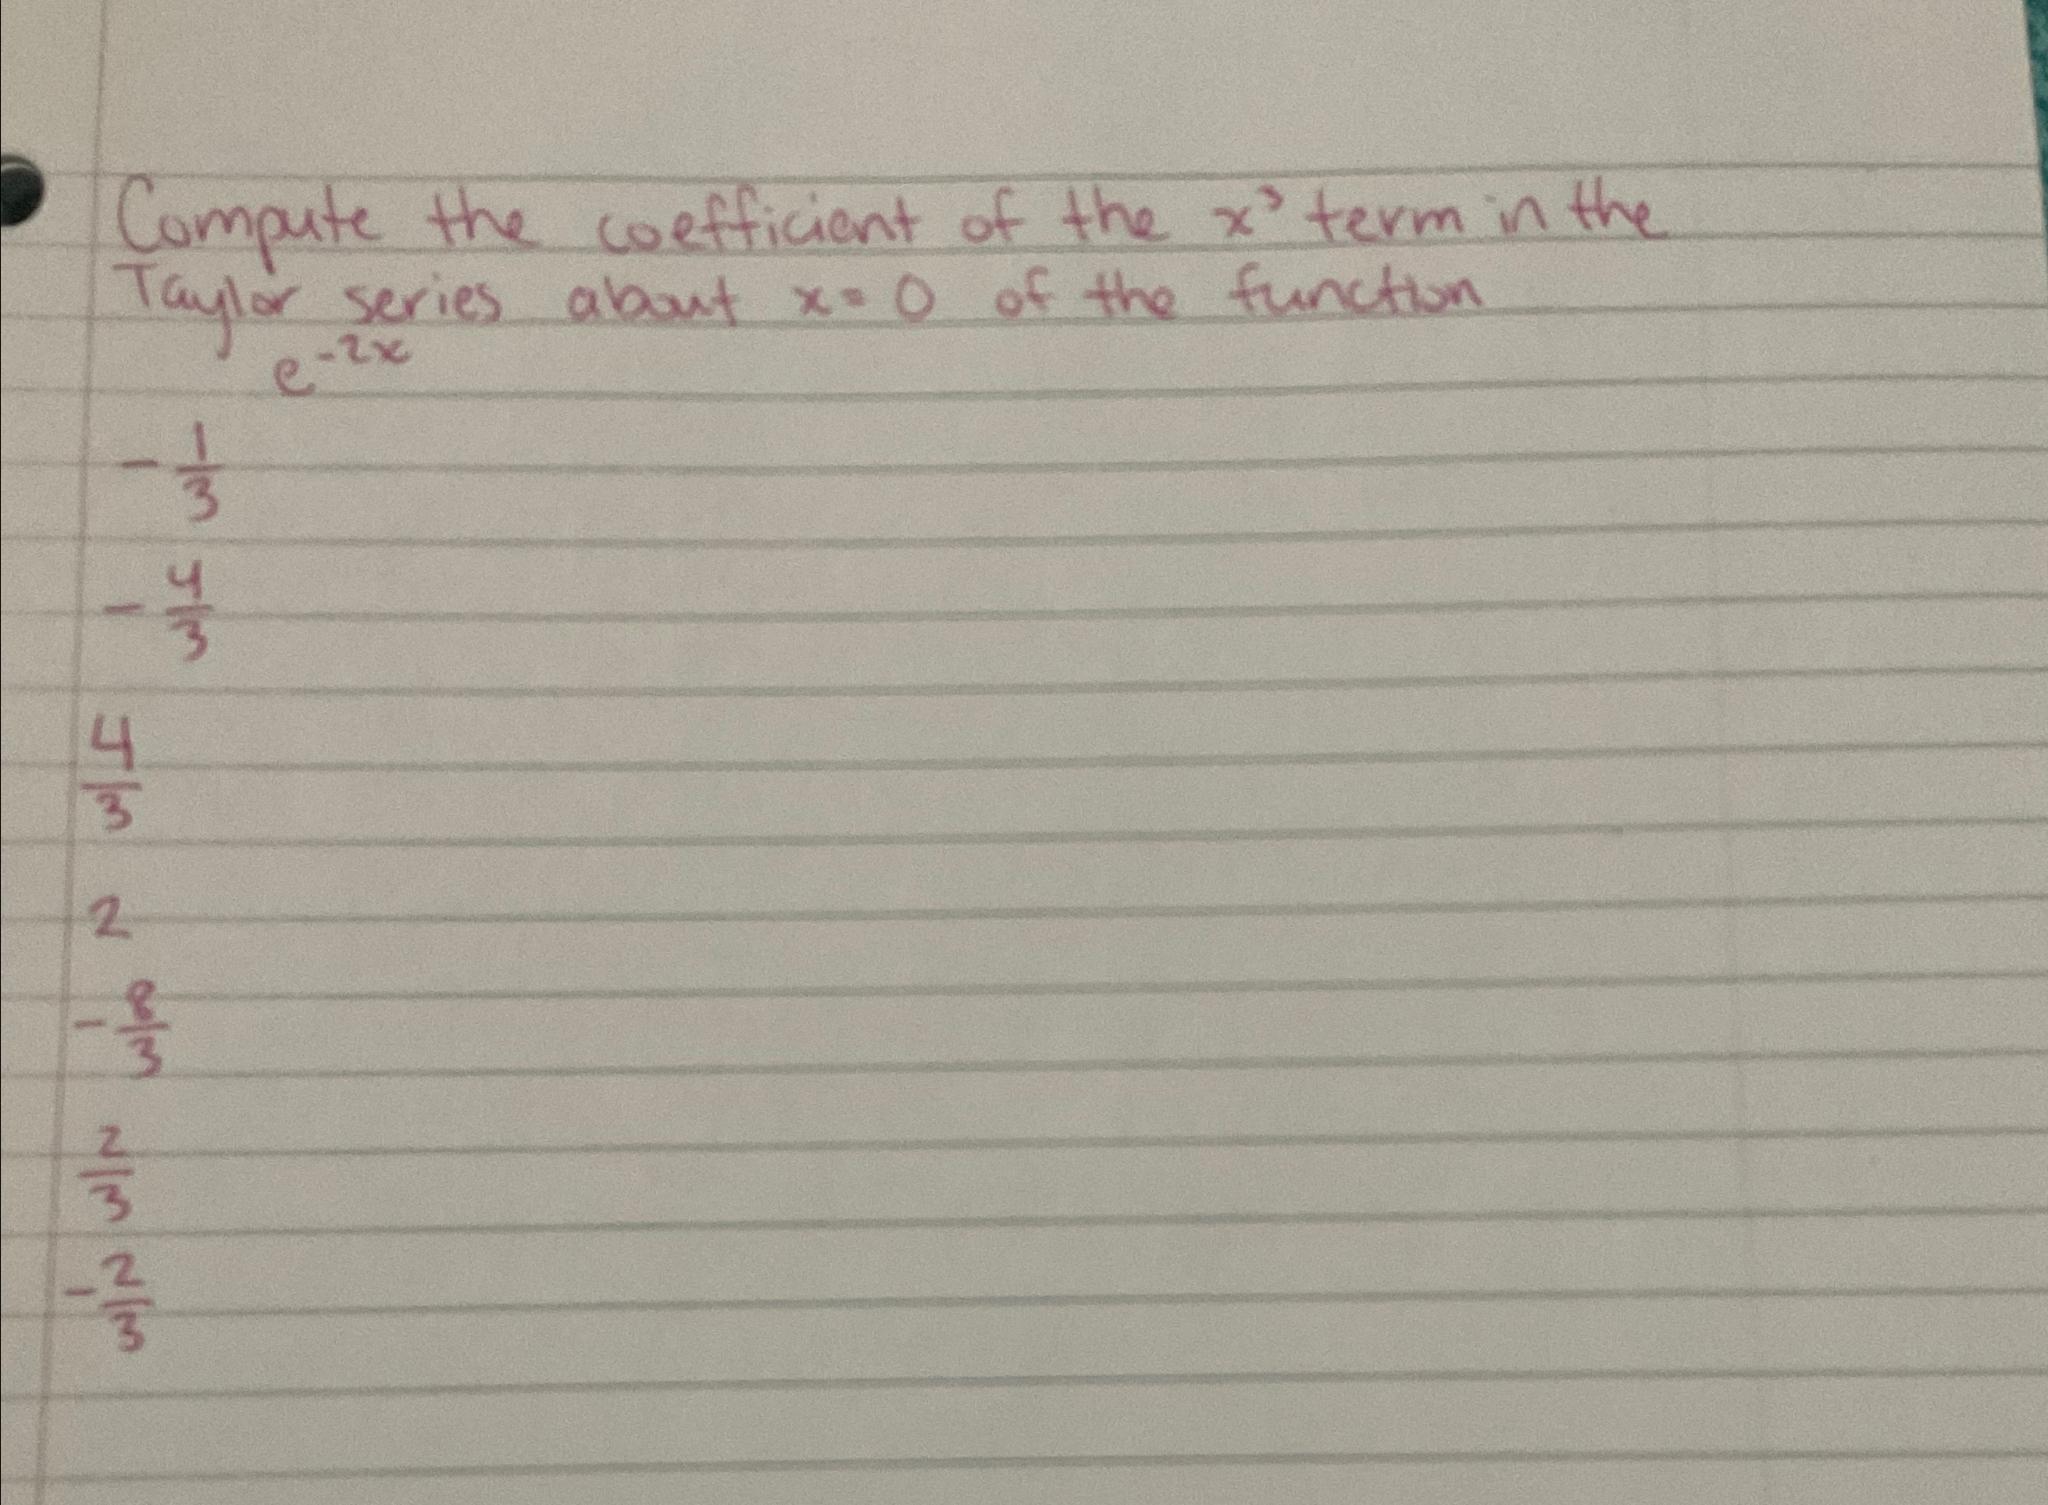 Compute the coefficient of the x³ term in the
Taylor series about x = 0 of the function
e^-2x
- 1/3
- 4/3
4/3
2
- 8/3
2/3
- 2/3